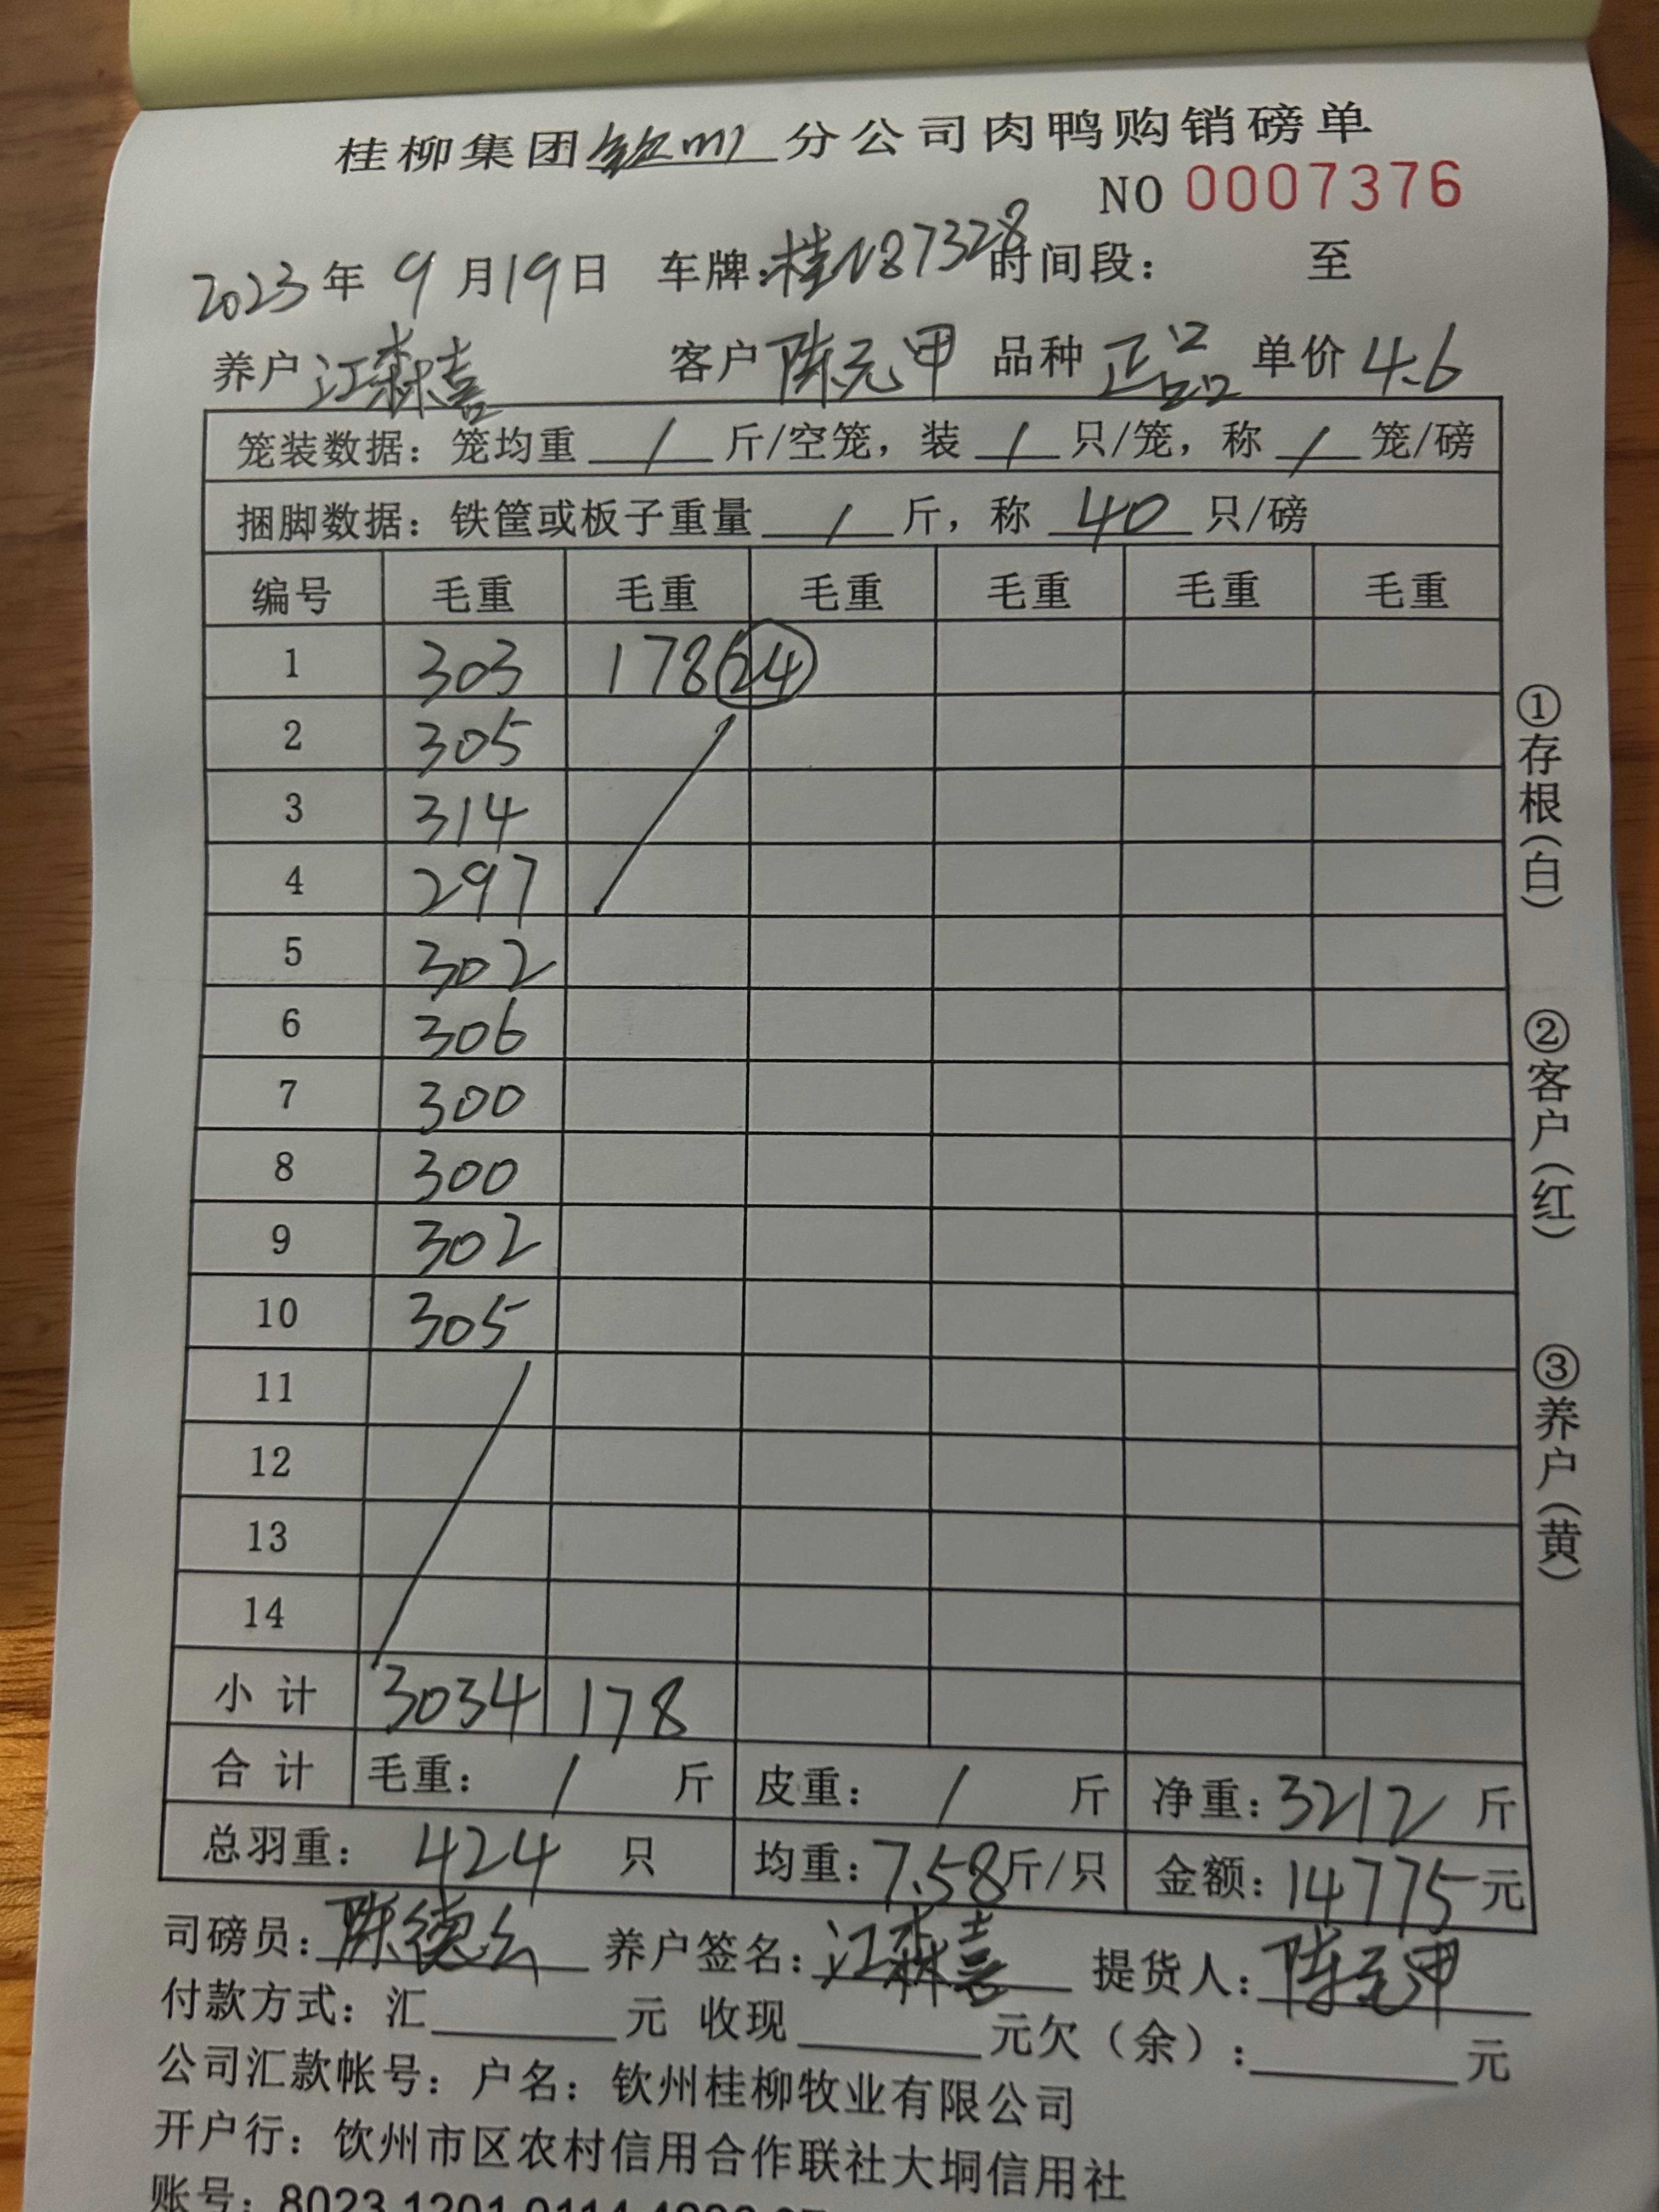 桂柳集团钦州分公司肉鸭购销磅单
NO 0007376
2023年9月19日 车牌:桂N87328时间段: 至
养户 江森喜 客户 陈元甲 品种 正品 单价 4.6
笼装数据: 笼均重 / 斤/空笼, 装 / 只/笼, 称 / 笼/磅
捆脚数据: 铁筐或板子重量 / 斤, 称 40 只/磅
编号 毛重 毛重 毛重 毛重 毛重 毛重
1 303 178 24
2 305
3 314
4 297
5 302
6 306
7 300
8 300
9 302
10 305
11
12
13
14
小计 3034 178
合计 毛重: / 斤 皮重: / 斤 净重: 3212 斤
总羽重: 424 只 均重: 7.58斤/只 金额: 14775元
司磅员: 陈德 养户签名: 江森喜 提货人: 陈元甲
付款方式: 汇 元 收现 元欠(余): 元
公司汇款帐号: 户名: 钦州桂柳牧业有限公司
开户行: 钦州市区农村信用合作联社大垌信用社
账号: 8023 1201 0114
①存根(白)
②客户(红)
③养户(黄)